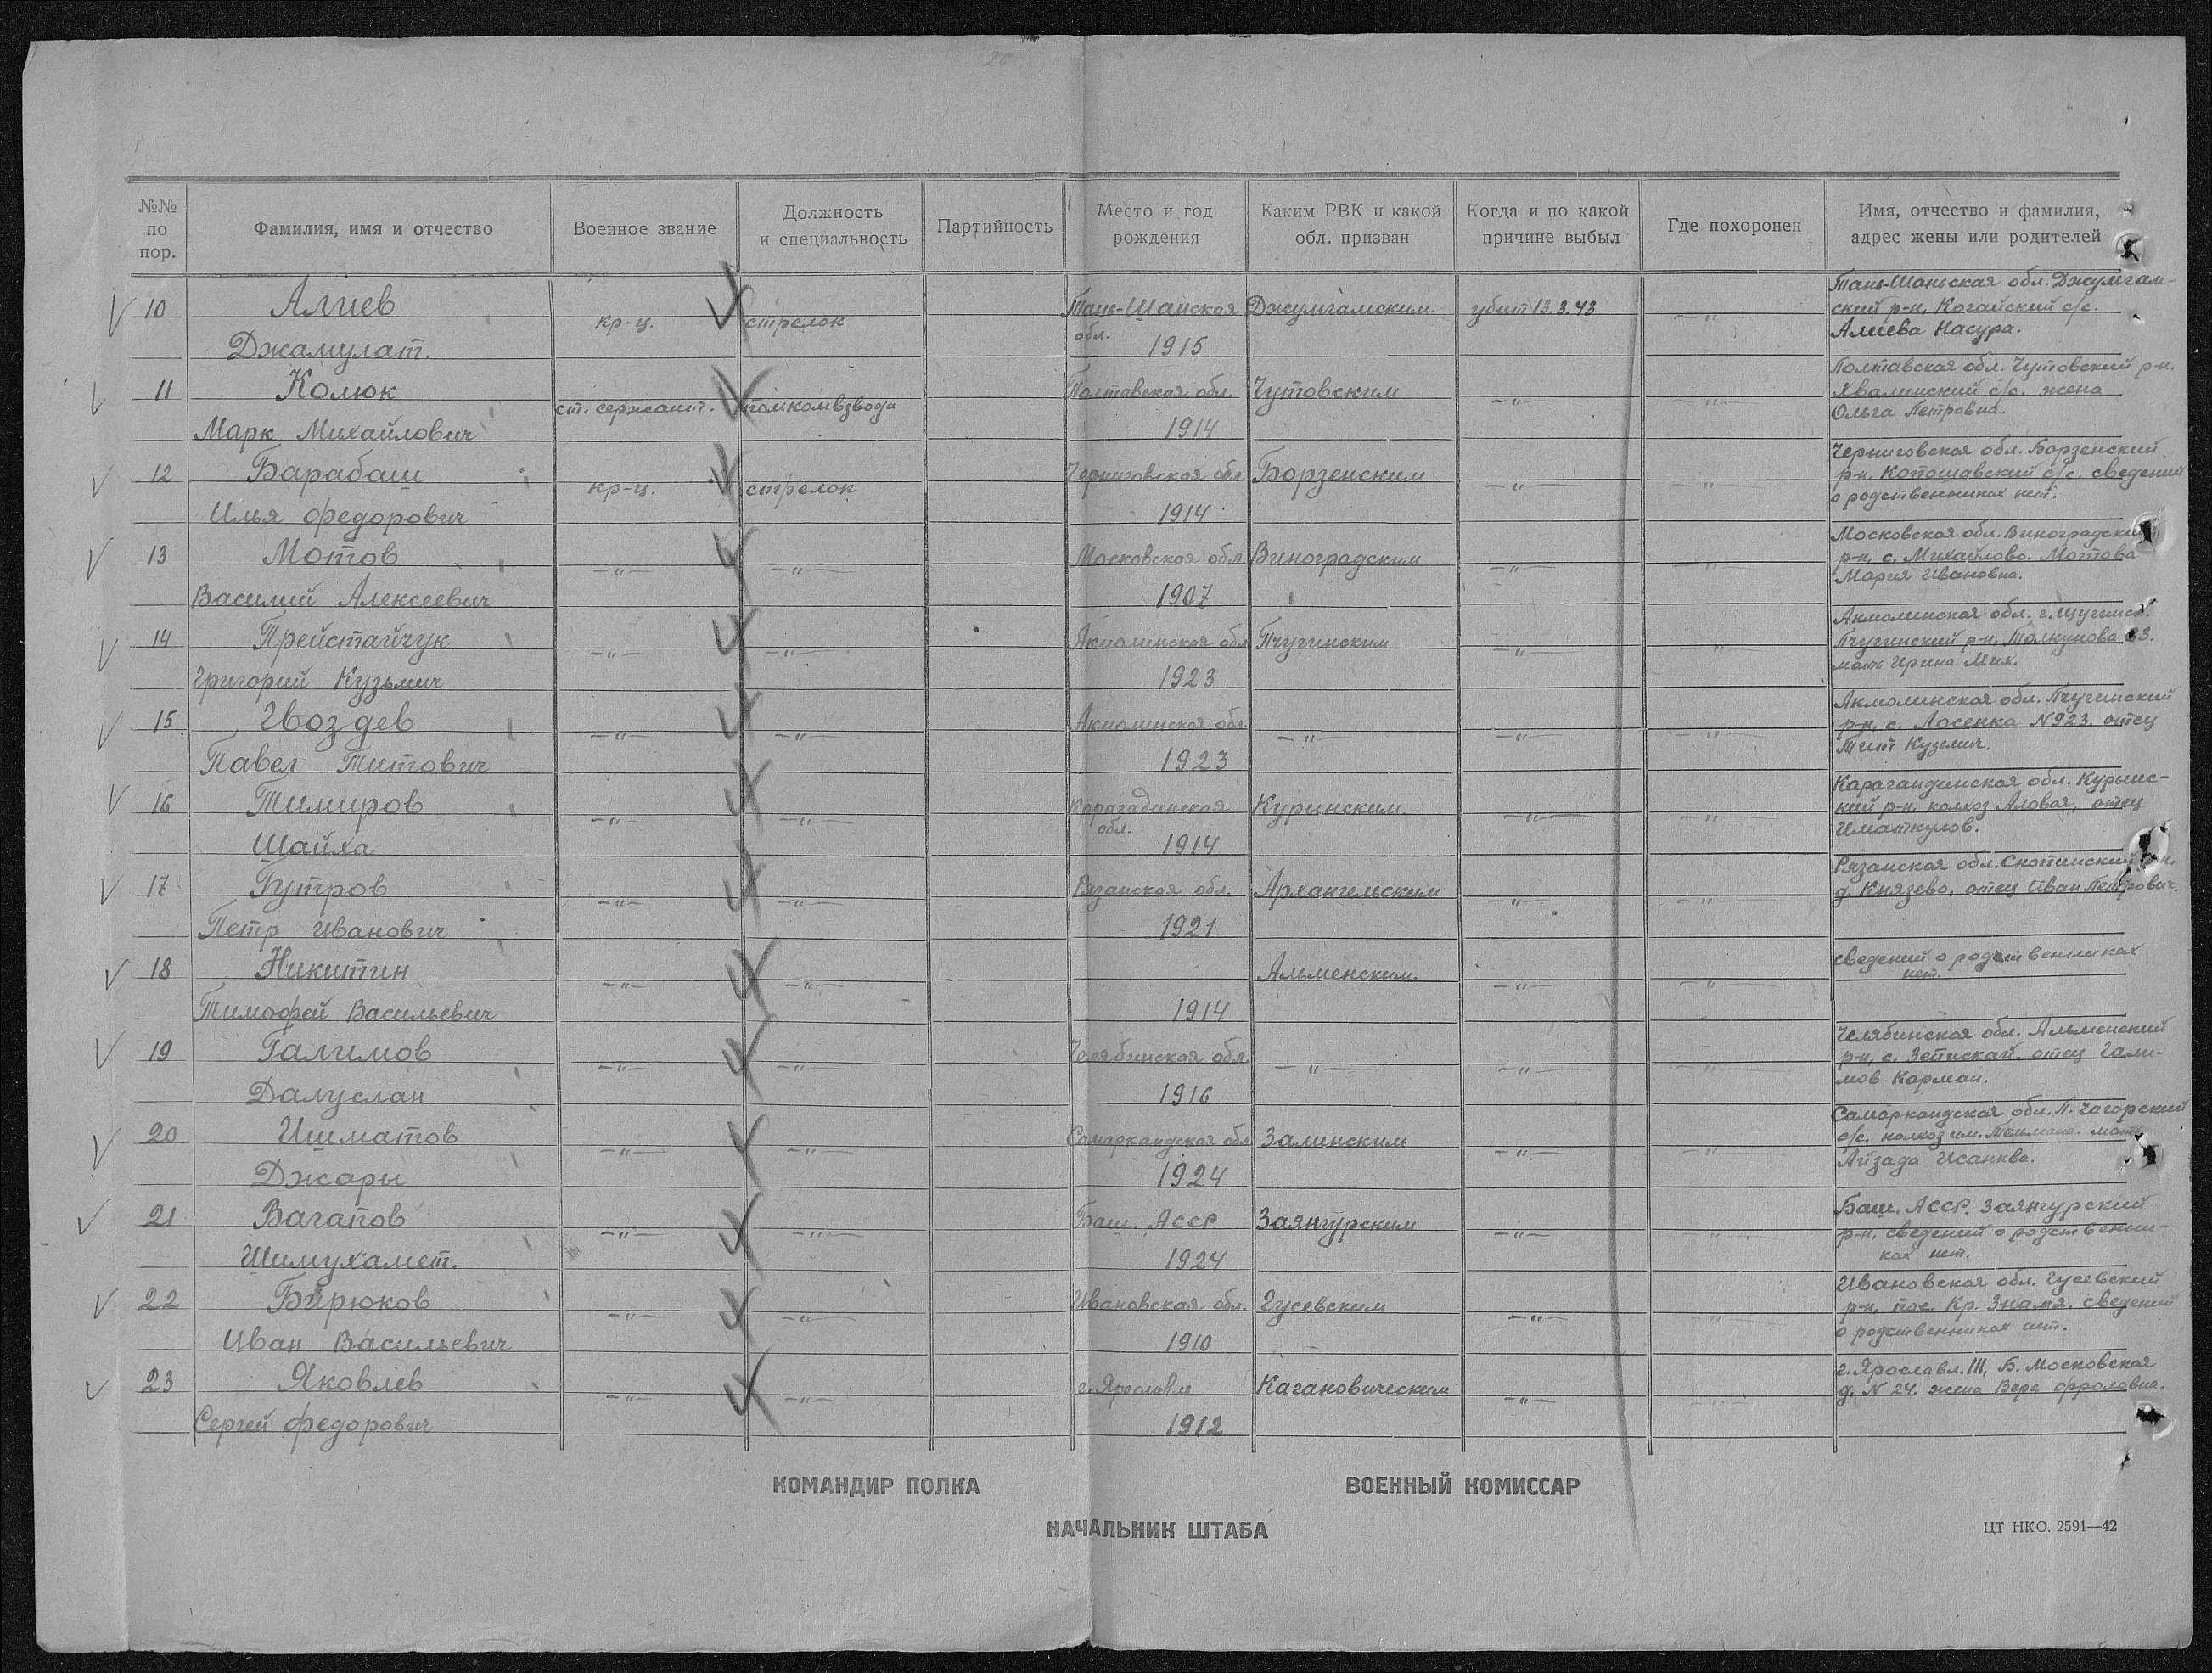 №№ по пор.
Фамилия, имя и отчество
Военное звание
Должность и специальность
Партийность
Место и год рождения
Каким РВК и какой обл. призван
Когда и по какой причине выбыл
Где похоронен
Имя, отчество и фамилия, адрес жены или родителей
10 Алиев кр-ц. стрелок Тань-Шанская Джумгамским. убит 13.3.43 -"-
обл.
Джамулат. 1915
Тань-Шаньская обл. Джумгам-
ский р-н, Когайский с/с.
Алиева Насура.
11 Колюк ст. сержант. помкомвзвода Полтавская обл. Чутовским -"- -"-
Марк Михайлович 1914
Полтавская обл. Чутовский р-н.
Хвалинский с/с. жена
Ольга Петровна.
12 Барабаш кр-ц. стрелок Черниговская обл Борзенским -"- -"-
Илья Федорович 1914
Черниговская обл. Борзенский
р-н. с/с. сведений
о родственниках нет.
13 Мотов -"- -"- Московская обл Виноградским -"- -"-
Василий Алексеевич 1907
Московская обл. Виноградский
р-н, с. Михайлово. Мотова
Мария Ивановна.
14 Прейстайчук -"- -"- Акмолинская обл Пчугинским -"- -"-
Григорий Кузьмич 1923
Акмолинская обл. г.
Пчугинский р-н. Толкунова 63.
мать Ирина Мих.
15 Гвоздев -"- -"- Акмолинская обл. -"- -"- -"-
Павел Титович 1923
Акмолинская обл. Пчугинский
р-н, с. Лосенка N923. отец
Тит Куземич.
16 Тимиров -"- -"- Карагадинская Куринским. -"- -"-
обл.
Шайха 1914
Карагандинская обл. Курынс-
кий р-н. колхоз Аловая, отец
Иматкулов.
17 Гутров -"- -"- Рязанская обл. Архангельским -"- -"-
Петр Иванович 1921
Рязанская обл. Скопинский р-н.
д. Князево, отец Иван Петрович.
18 Никитин -"- -"- Альменским. -"- -"-
Тимофей Васильевич 1914
сведений о родственниках
нет.
19 Галимов -"- -"- Челябинская обл. -"- -"- -"-
Далуслан 1916
Челябинская обл. Альменский
р-н, с. отец Гали-
мов Карман.
20 Ишматов -"- -"- Самаркандская обл Залинским -"- -"-
Джары 1924
Самаркандская обл. П. Чагорский
с/с. колхоз им. Тельмана. мать
Айзада
21 Вагапов -"- -"- Баш. АССР. Заянгурским -"- -"-
Шимухамет. 1924
Баш. АССР. Заянгурский
р-н, сведений о родственни-
ках нет.
22 Бирюков -"- -"- Ивановская обл. Гусевским -"- -"-
Иван Васильевич 1910
Ивановская обл. Гусевский
р-н, пос. Кр. Знамя. сведений
о родственниках нет.
23 Яковлев -"- -"- г. Ярославль Кагановическим -"- -"-
Сергей Федорович 1912
г. Ярославль. III, Б. Московская
д. N 24. жена Вера Фроловна.
КОМАНДИР ПОЛКА
ВОЕННЫЙ КОМИССАР
НАЧАЛЬНИК ШТАБА
ЦТ НКО. 2591—42